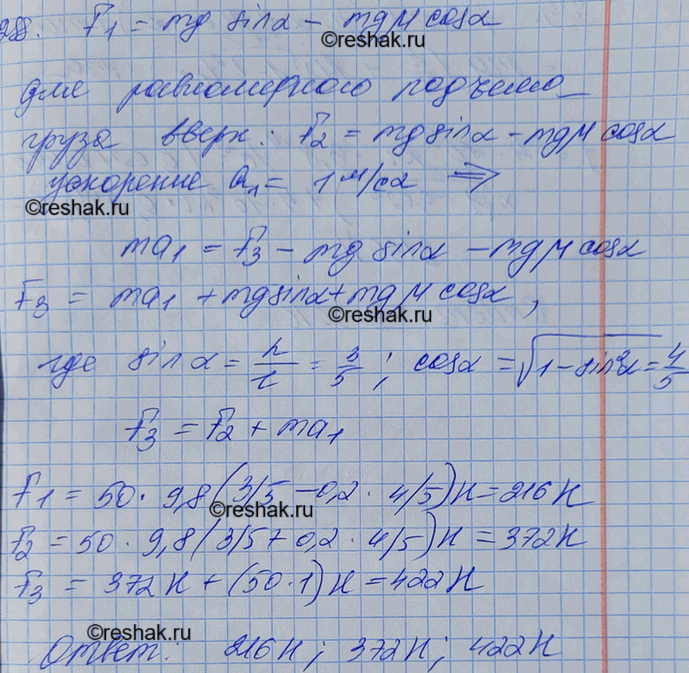 288. F1 = mg sinα - mgμ cosα
©reshak.ru
для равномерного подъема
груза вверх: F2 = mg sinα - mgμ cosα
ускорение a1 = 1 м/с2 ⇒
©reshak.ru
ma1 = F3 - mg sinα - mgμ cosα
F3 = ma1 + mg sinα + mgμ cosα,
©reshak.ru
где sinα = h/l = 3/5; cosα = √(1 - sin²α) = 4/5
F3 = F2 + ma1
F1 = 50 · 9,8 (3/5 - 0,2 · 4/5) Н = 216 Н
F2 = 50 · 9,8 (3/5 + 0,2 · 4/5) Н = 372 Н
F3 = 372 Н + (50 · 1) Н = 422 Н
©reshak.ru
Ответ: 216 Н; 372 Н; 422 Н